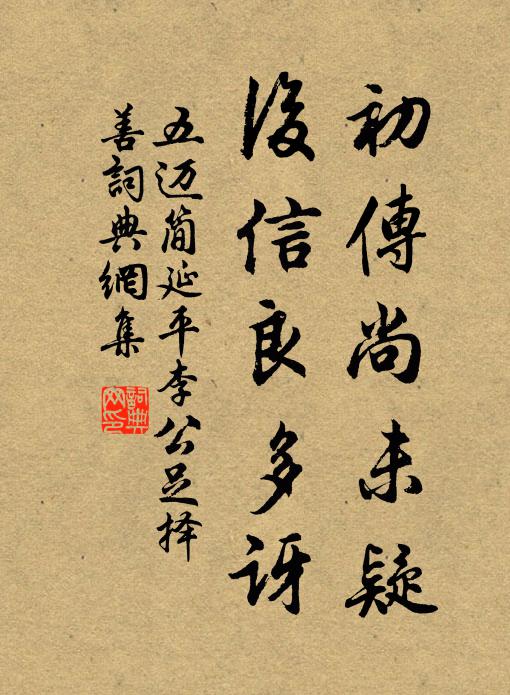 初傳尚未疑
後信良多訝
五迈简延平李公足择
善詞典網集
詞典
网印